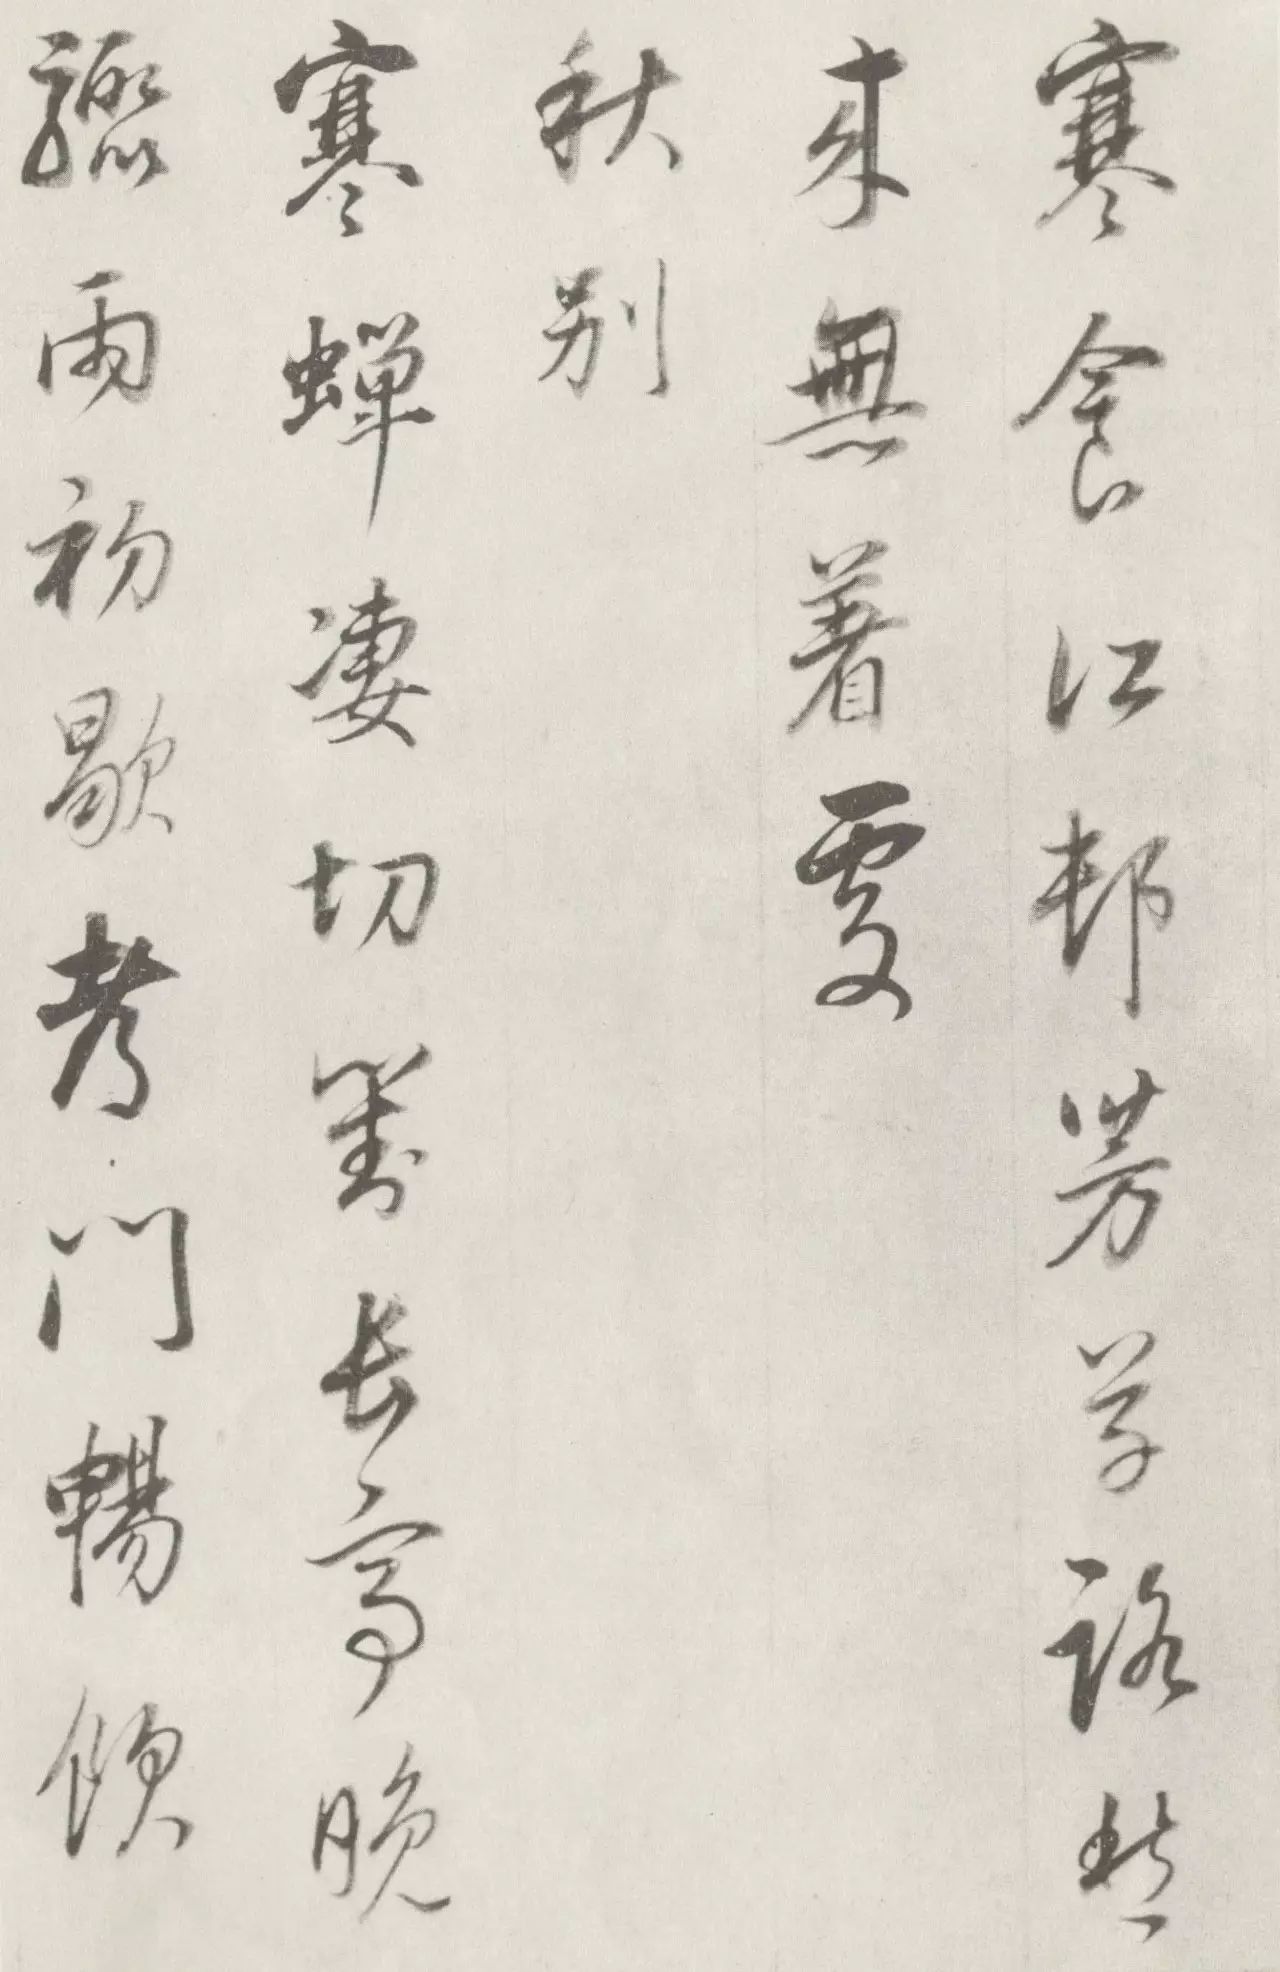 寒食江邨芳草路愁
来無著處
秋别
寒蟬凄切對长亭晚
驟雨初歇考門暢飲